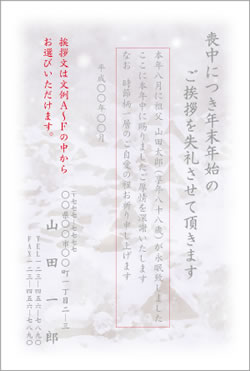 喪中につき年末年始の
ご挨拶を失礼させて頂きます
本年八月に祖父 山田太郎(享年八十八歳)が永眠致しました
ここに本年中に賜りましたご厚情を深謝いたします
なお 時節柄一層のご自愛の程お祈り申し上げます
平成〇〇年〇〇月
挨拶文は文例A〜Fの中から
お選びいただけます。
〒七七七-七七七七
〇〇県〇〇市〇〇町一丁目二-三
山田一郎
TEL 一二三-四五六-七八九〇
FAX 一二三-四五六-七八九〇